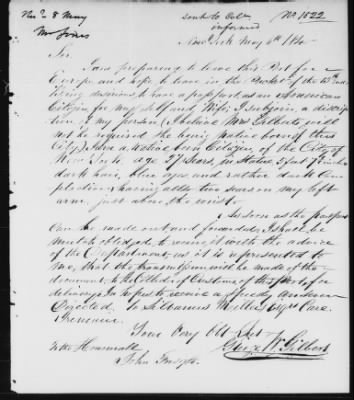 Rec'd 8 May
Mr Jones
sent to Coll.
informed
No 1522
New York May 6th
Sir
I am preparing to leave this Port for
Europe, and expect to leave in the Packet of the 15th and
being desirous to have a passport, as an American
Citizen for my self and Wife, I subjoin a descrip
tion of my person, (I believe Mrs Gilberts will
not be required she being native born of this
City) I am a Native born Citizen of the City of
New York, age 27 years, in Stature 5 feet 7 inches
dark hair, blue eyes, and rather dark Com
plection, having also two scars on my left
arm just above the wrist.
As soon as the passport
Can be made out and forwarded, I shall be
much obliged to receive it with the advice
of the Department, as it is represented to
me, that the transmission will be made of the
document, to the Collector of Customs of this Port for
delivery. In hopes to receive a speedy answer
Directed to Silvanus Miller Esqr Care.
I remain
Yours Very Obt Sevt
George W. Gilbert
To the Honourable
John Forsyth